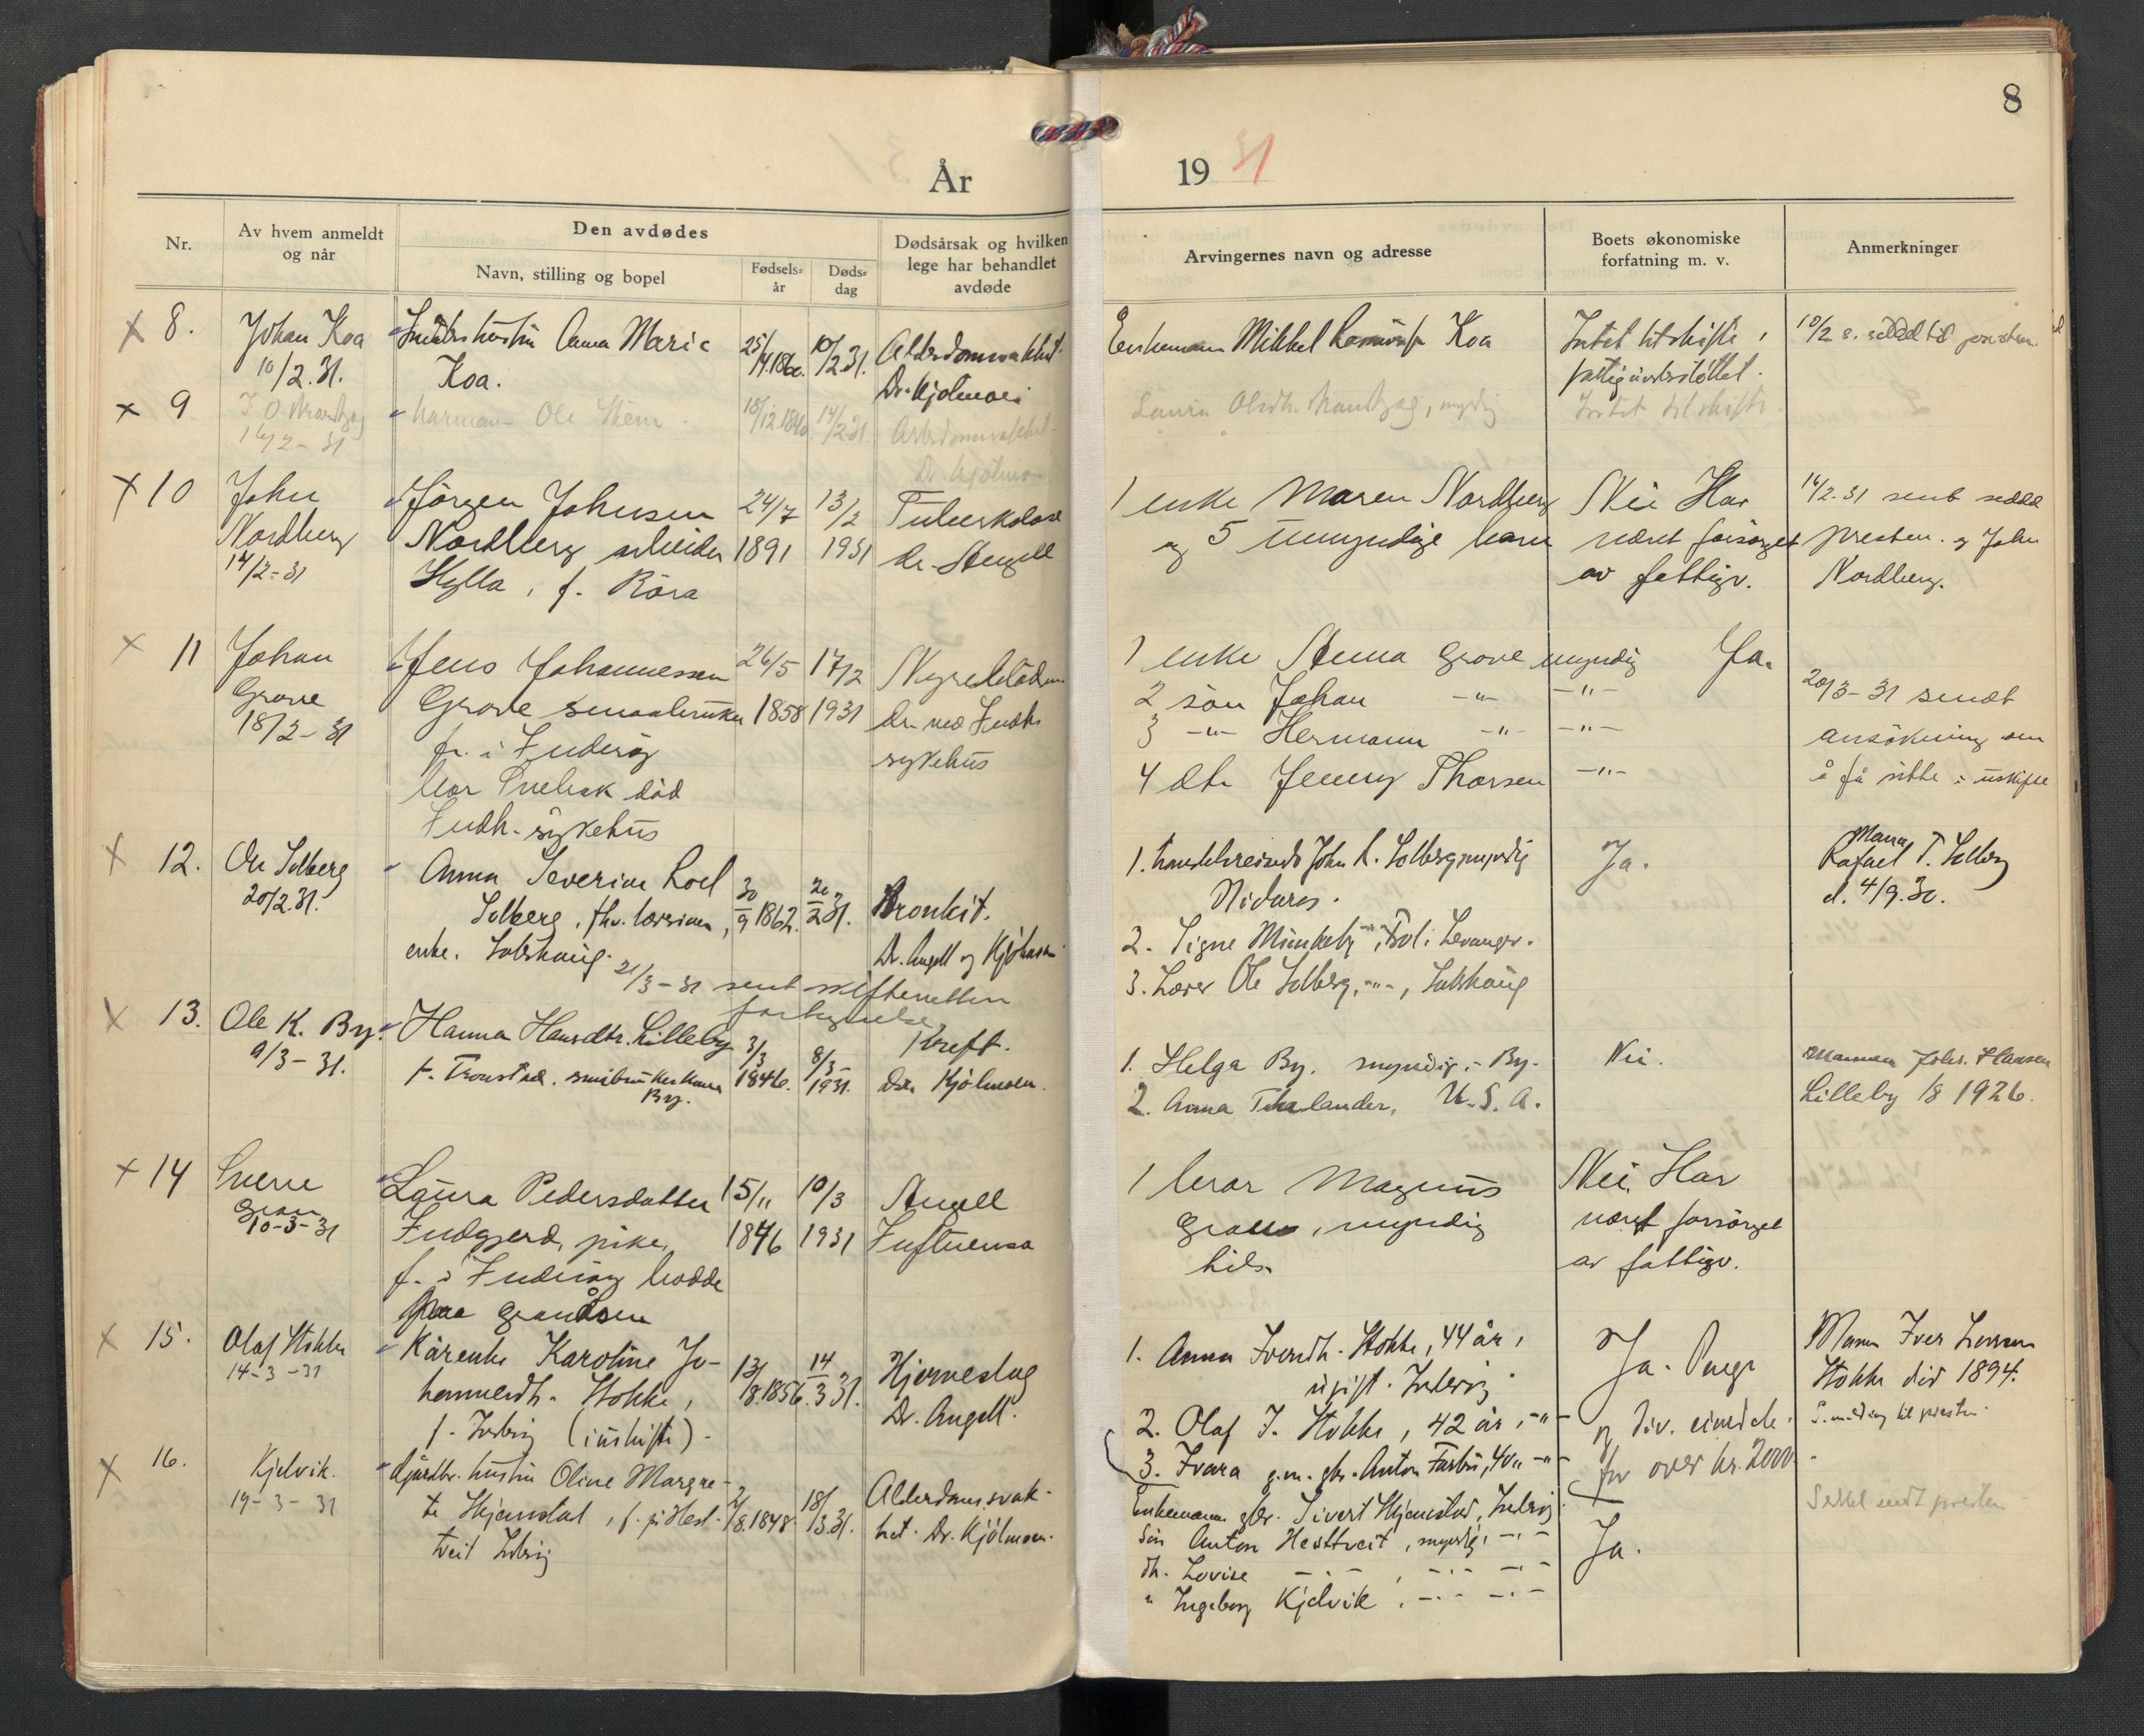 8
År
19 31
Nr.
Av hvem anmeldt
og når
Den avdødes
Navn, stilling og bopel
Fødsels-
år
Døds-
dag
Dødsårsak og hvilken
lege har behandlet
avdøde
Arvingernes navn og adresse
Boets økonomiske
forfatning m. v.
Anmerkninger
x 8.
Johan Koa
10/2.31.
Anna Marie
Koa.
25/4.1860.
10/2.31.
Dr. Kjölmoen
Enkemann Mikkel Koa
Intet til skifte,
fattigunderstöttet.
10/2 s. seddel til presten.
x 9
14/2-31
Ole
14/2 31.
Laura Olsdtr. , myndig
Intet til skifte.
x 10
John
Nordberg
14/2-31
Jörgen Johnsen
Nordberg arbeider
Hylla, f. Röra
24/7
1891
13/2
1931
Tuberkulose
Dr. Angell
1 enke Maren Nordberg
og 5 umyndige barn
Nei Har
været forsörget
av fattigv.
14/2-31 sendt seddel
presten og John
Nordberg.
x 11
Johan
Grove
18/2-31
Jens Johannessen
Grove smaabruker
fr. i Inderöy
död
Indh. sykehus
26/5
1858
17/2
1931
Dr. ved Indh.
sykehus
1 enke Anna Grove myndig
2 sön Johan -"- -"-
3 -"- Hermann -"- -"-
4 dtr Jenny Thorsen -"-
Ja.
20/3-31 sendt
ansökning om
å få sitte i uskifte
x 12.
Ole Solberg
20/2.31.
Anna Severine Loel
Solberg, fhv. lærerinne,
enke. Salshaug.
21/3-31 sendt skifteretten
30/9 1862.
20/2 31.
Bronkit.
Dr. Angell og Kjölmoen
1. John R. Solberg, myndig
Nidaros.
2. Signe Munkeby -"-, Levanger.
3. Lærer Ole Solberg, -"-, Salshaug
Ja.
Mann
Rafael T. Solberg
d. 4/9.30.
x 13.
Ole K. By.
9/3-31.
Hanna Hansdtr. Lilleby
f. Tronstad. småbrukerkone
By.
3/3
1846.
8/3-
1931.
Kreft.
Dr. Kjölmoen.
1. Helga By. myndig, - By.
2. Anna , U.S.A.
Nei.
Mannen Johs. Hansen
Lilleby 1926.
x 14
Sverre
Gran
10-3-31
Laura Pedersdatter
Indgjerd, pike,
f. i Inderöy bodde
paa Granåsen
15/11
1846
10/3
1931
Angell
Influensa
1 bror Magnus
, myndig
Nei. Har
været forsörget
av fattigv.
x 15.
Olaf Stokke
14-3-31
Kårenke Karoline Jo-
hannesdtr. Stokke,
f. Inderöy (uskifte).
13/8.1856.
14/3 31.
Hjerneslag
Dr. Angell.
1. Anna Iversdtr. Stokke, 44 år,
ugift. Inderöy
2. Olaf I. Stokke, 42 år, -"-
3. Ivara g.m. gbr. Anton , 40 " -"-
Ja. Penge
og div. eiendele
for over kr. 2000
Mann Iver Larsen
Stokke död 1894.
S. melding til presten
x 16.
Kjelvik.
19-3-31
Gårdbr. hustru Oline Margre-
te Hjemstad, f. på Hest-
tveit Inderöy
2/8.1848.
18/3.31.
Alderdomssvak-
het. Dr. Kjölmoen.
Enkemann gbr. Sivert Hjemstad, Inderöy.
Sön Anton Hesttveit, myndig, -"-
Dtr. Lovise -"- , -"- -"-
" Ingeborg Kjelvik, -"- -"-
Ja.
Seddel sendt presten